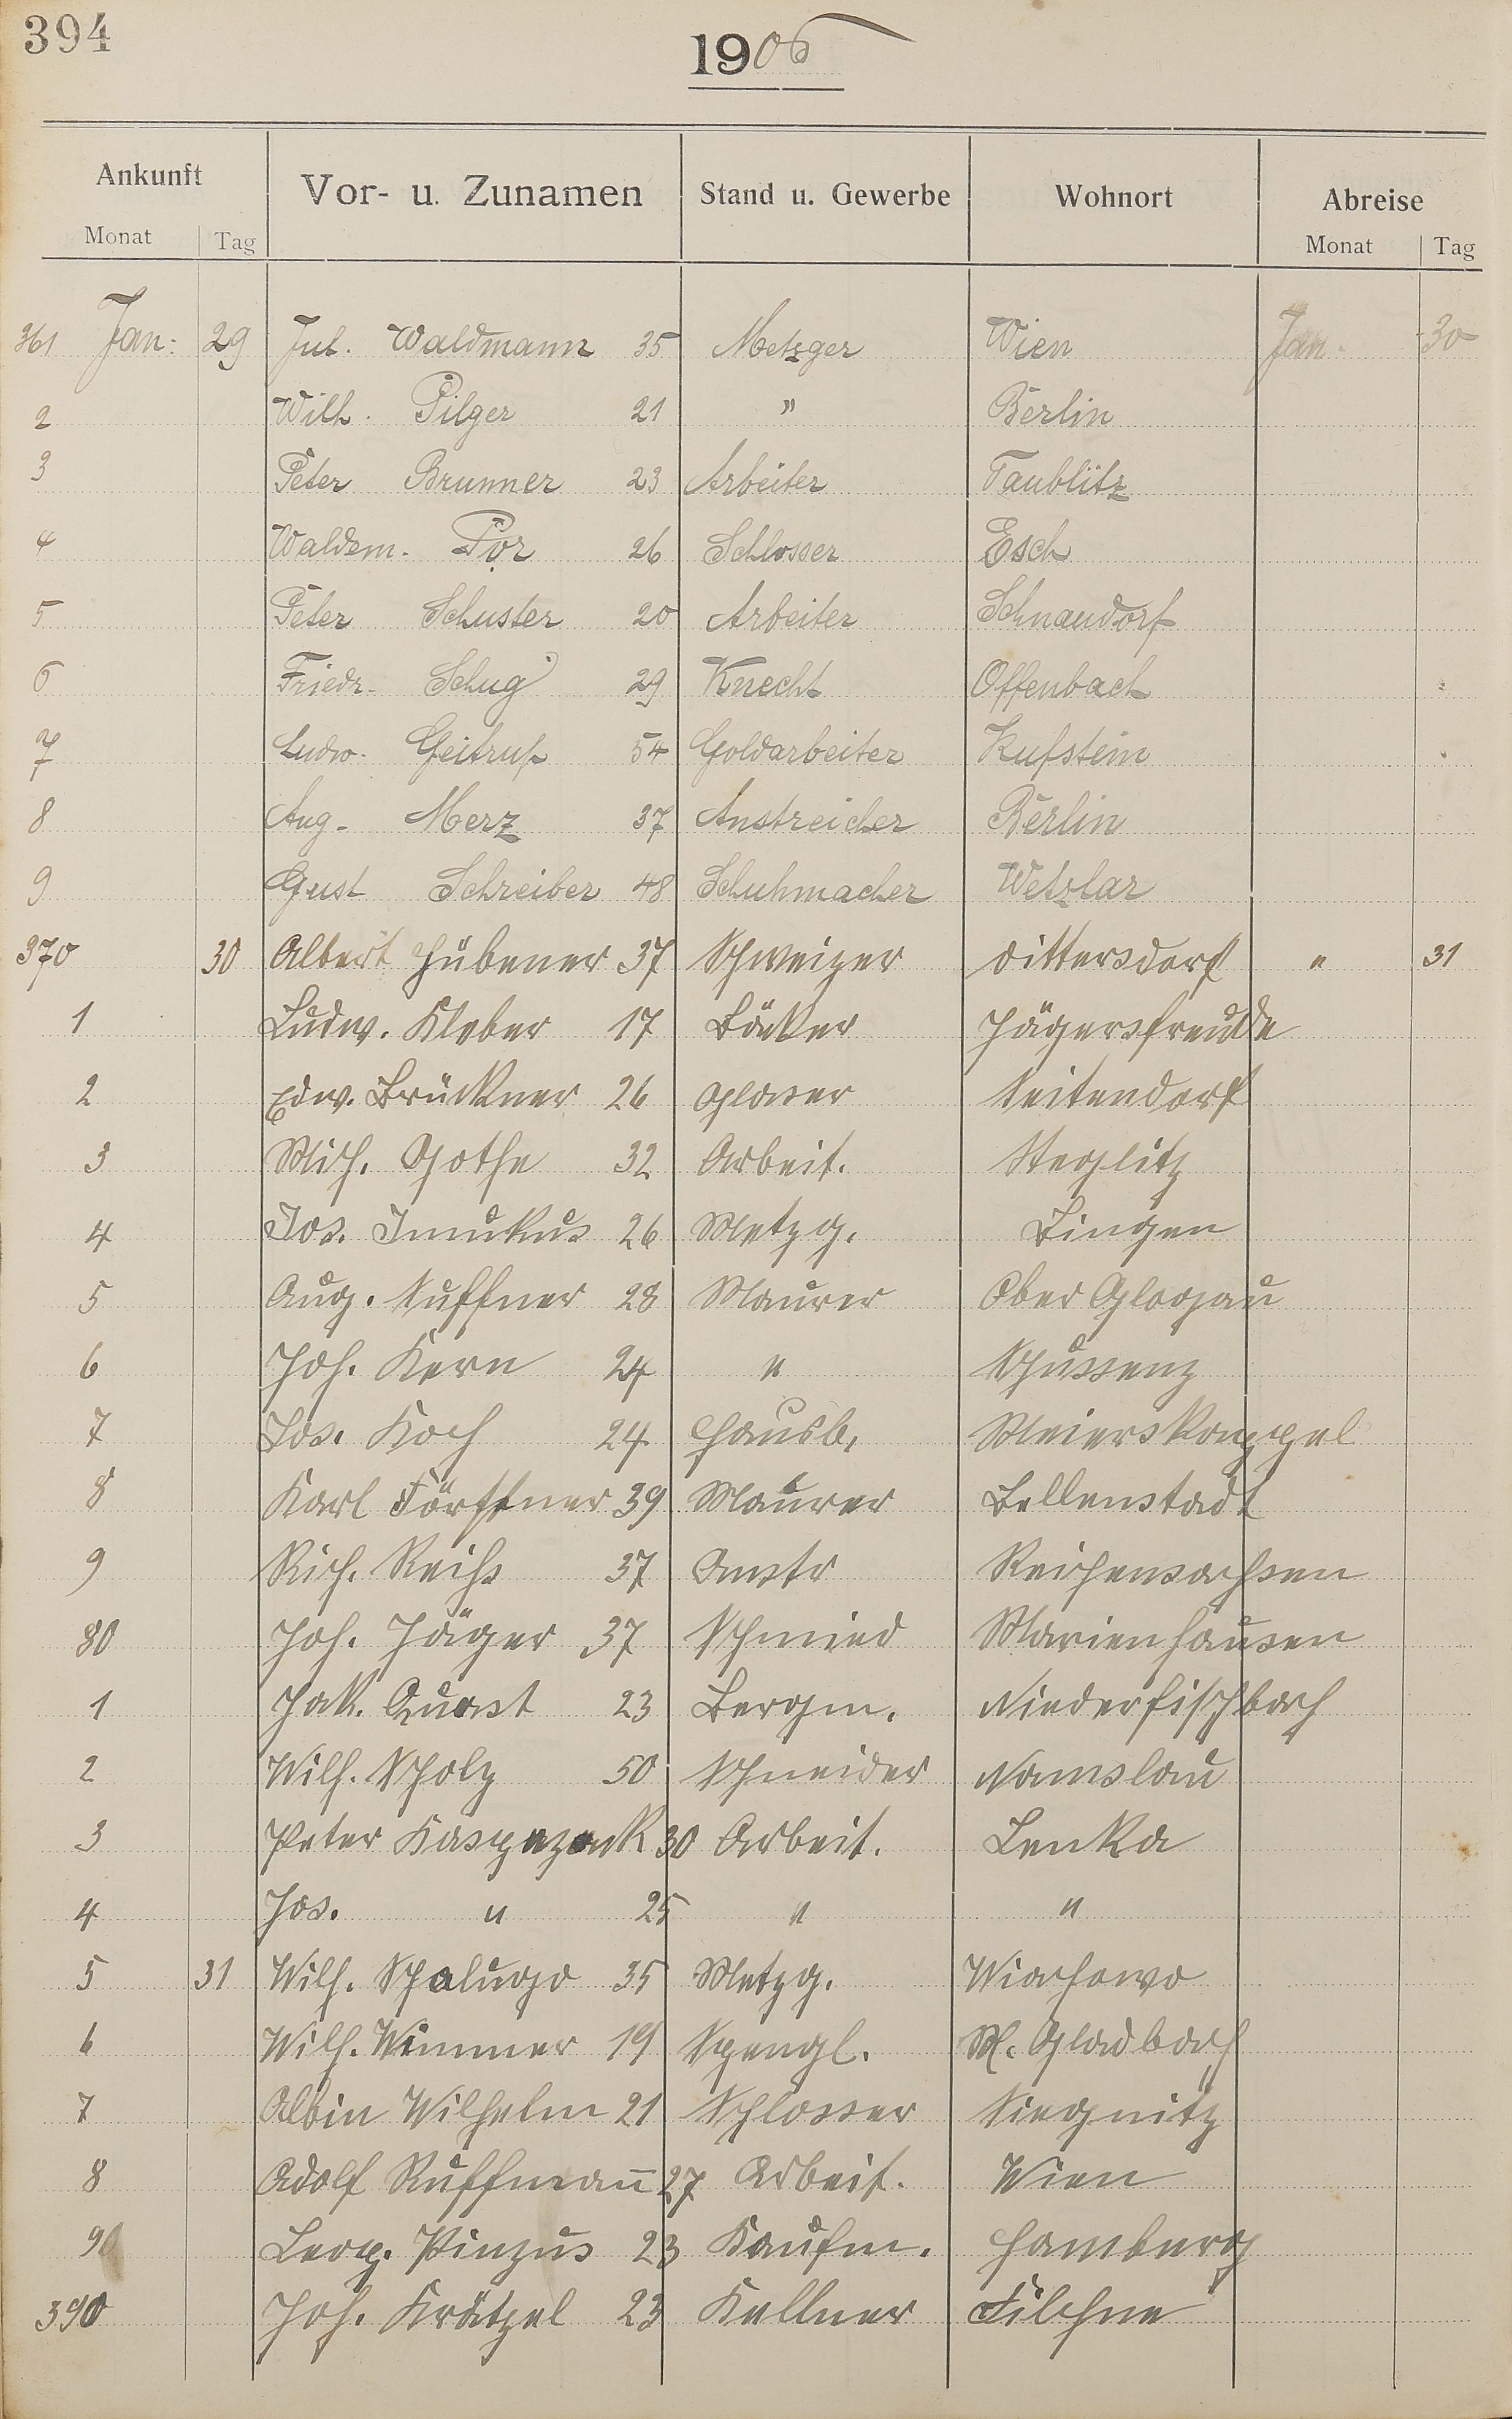 394
1906
Ankunft Vor- u. Zunamen Stand u. Gewerbe Wohnort Abreise
Monat Tag Monat Tag
361 Jan: 29 Jul. Waldmann 35 Metzger Wien Jan. 30
2 Wilh. Pilger 21 " Berlin
3 Peter Brunner 23 Arbeiter Taublitz
4 Waldem. Por 26 Schlosser Esch
5 Peter Schuster 20 Arbeiter Schnaudorf
6 Friedr. Schug 29 Knecht Offenbach
7 Ludw. 54 Goldarbeiter Kufstein
8 Aug. Merz 37 Anstreicher Berlin
9 Gust Schreiber 48 Schuhmacher Wetzlar
370 30 Albert Hübener 37 Schweizer Dittersdorf " 31
1 Ludw. Kleber 17 Bäcker Jägersfreude
2 Edw. Brückner 26 Glaser Seitendorf
3 Mich. Gothe 32 Arbeit. Steglitz
4 Jos. 26 Metzg. Bingen
5 Aug. Suffner 28 Maurer Ober Glogau
6 Joh. Kern 24 " Schussenz
7 Jos. Koch 24 Hausb. Meierskappel
8 Karl Förstner 39 Maurer Bellenstadt
9 Rich. Reihs 37 Anstr Reichensachsen
80 Joh. Jäger 37 Schmied Marienhausen
1 Jak. Quast 23 Bergm. Niederfischbach
2 Wilh. Scholz 50 Schneider Namslau
3 Peter 30 Arbeit. Lenka
4 Jos. " 25 " "
5 31 Wilh. 35 Metzg. Wiachowo
6 Wilh. Wimmer 19 Spengl. M. Gladbach
7 Albin Wilhelm 21 Schlosser Siegnitz
8 Adolf Ruffmann 27 Arbeit. Wien
90 Leop. Pinzus 23 Kaufm. Hamburg
390 Joh. Krätzel 23 Kellner Filehne